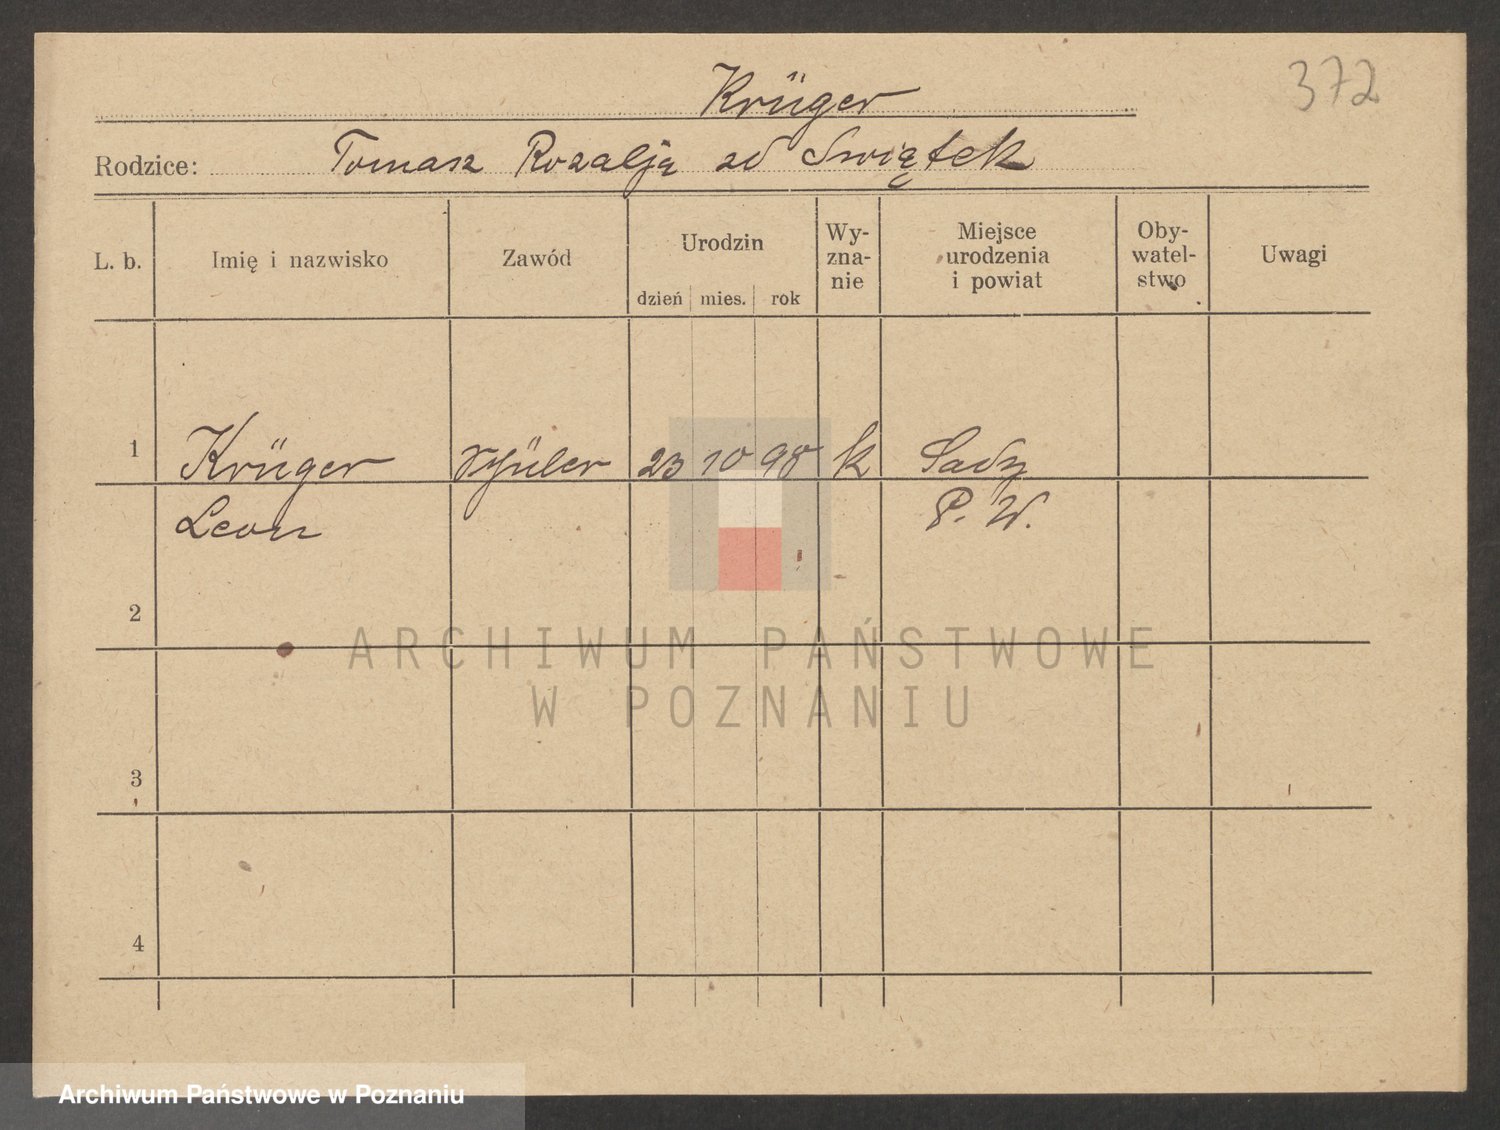 Krüger
372
Rodzice: Tomasz Rozalja zd Świątek
L. b.
Imię i nazwisko
Zawód
Urodzin
dzień mies. rok
Wy-
zna-
nie
Miejsce
urodzenia
i powiat
Oby-
watel-
stwo
Uwagi
1 Krüger Schüler 23 10 98 k Sady
Leon P. W.
2
3
4
ARCHIWUM PAŃSTWOWE
W POZNANIU
Archiwum Państwowe w Poznaniu